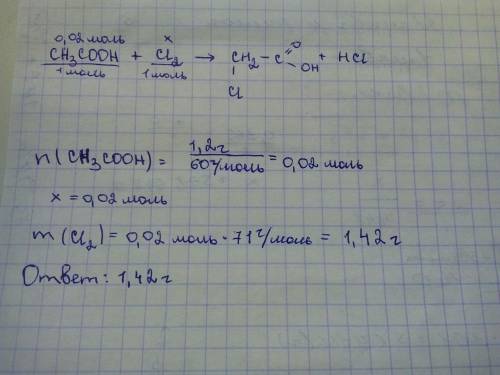 0,02 моль x
CH₃COOH + Cl₂ → CH₂ – C =O + HCl
1 моль 1 моль | \ OH
Cl
n(CH₃COOH) = 1,2г / 60г/моль = 0,02 моль
x = 0,02 моль
m(Cl₂) = 0,02 моль · 71г/моль = 1,42г
Ответ: 1,42г